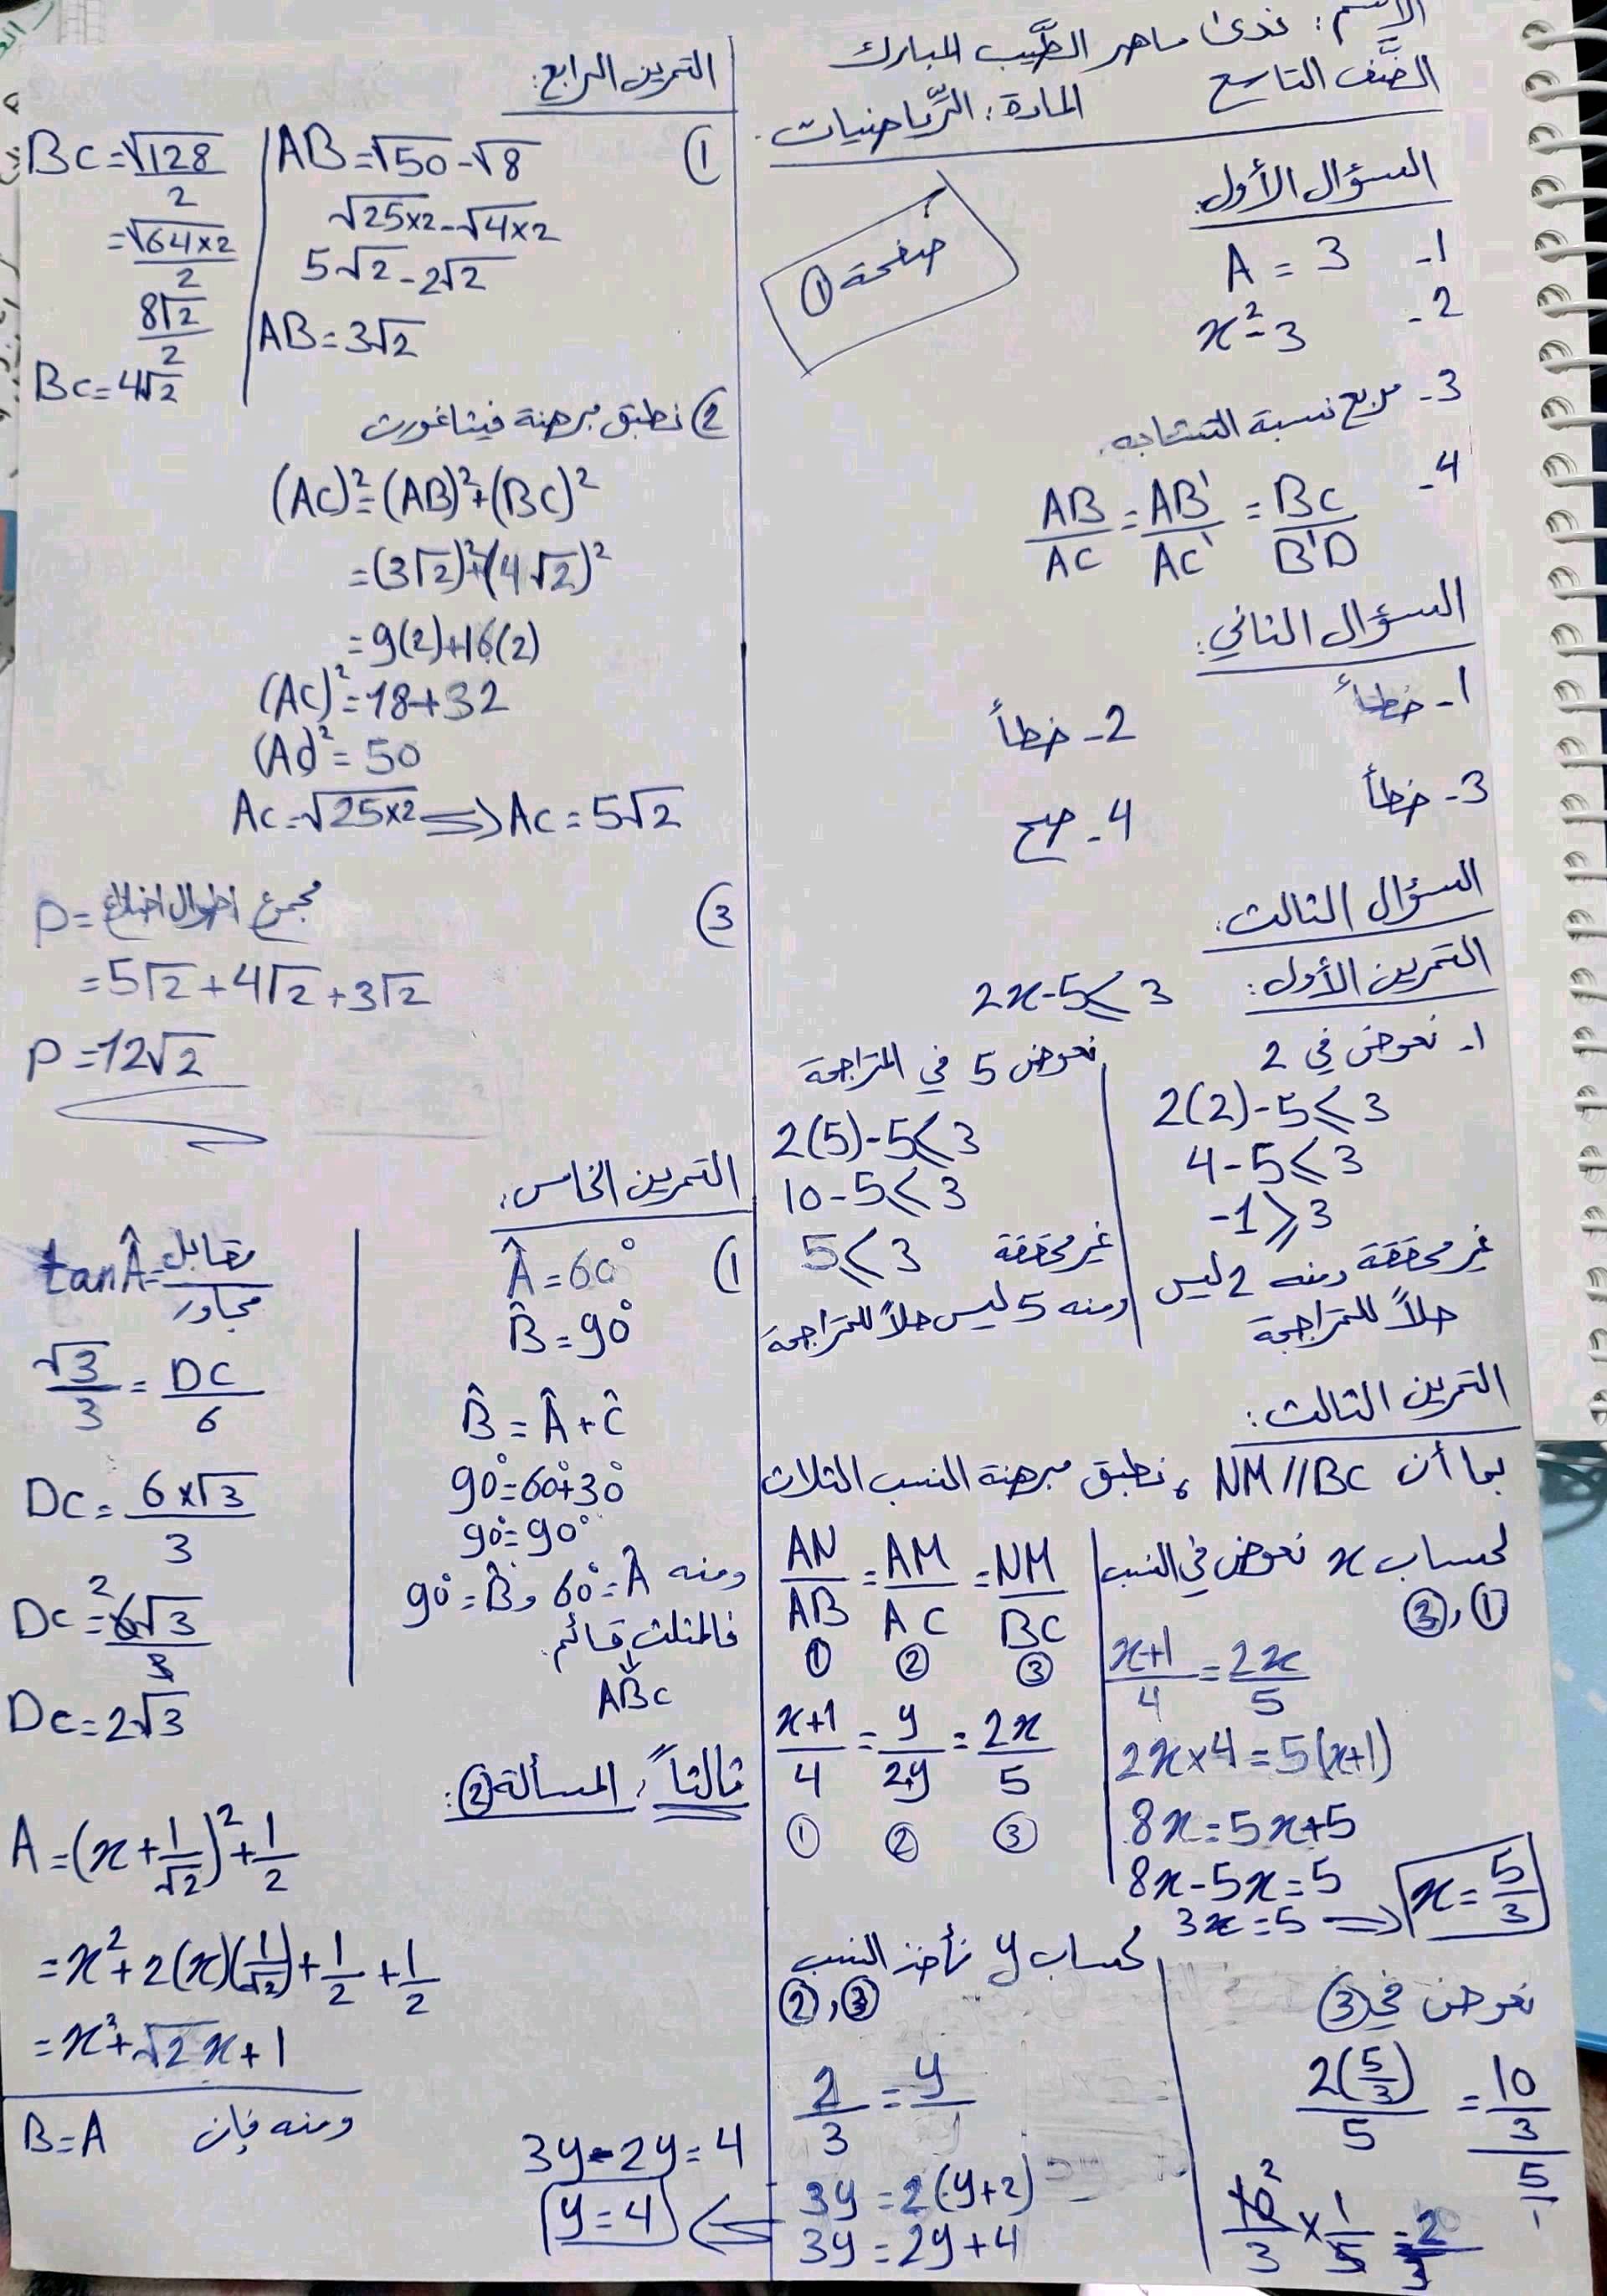 الاسم: ندى ماهر الطَّيب المبارك
الصَّف التاسع
المادة: الرِّياضيات.
صفحة ①
السؤال الأول:
1- A = 3
2- x² - 3
3- مربع نسبة التشابه.
4- AB/AC = AB'/AC' = BC/B'D
السؤال الثاني:
1- خطأ
2- خطأ
3- خطأ
4- صح
السؤال الثالث:
التمرين الأول:
2x-5 ⩽ 3
1- نعوض في 2
2(2)-5 ⩽ 3
4-5 ⩽ 3
-1 ⩾ 3
غير محققة ومنه 2 ليس
حلاً للمتراجحة
نعوض 5 في المتراجحة
2(5)-5 ⩽ 3
10-5 ⩽ 3
5 ⩽ 3 غير محققة
ومنه 5 ليس حلاً للمتراجحة
التمرين الثالث:
بما أن NM//BC ، نطبق مبرهنة النسب الثلاث
AN/AB = AM/AC = NM/BC
① ② ③
x+1/4 = y/2+y = 2x/5
① ② ③
لحساب x نعوض في النسب
①، ③
x+1/4 = 2x/5
2x×4 = 5(x+1)
8x = 5x+5
8x-5x = 5
3x = 5 ⟹ x = 5/3
نعوض في ③
2(5/3)/5 = 10/3/5/1
10/3 × 1/5 = 2/3
لحساب y نأخذ النسب
②، ③
2/3 = y/
3y = 2(y+2)
3y = 2y+4
3y-2y = 4
y = 4
التمرين الرابع:
1)
AB = √50 - √8
√25×2 - √4×2
5√2 - 2√2
AB = 3√2
BC = √128/2
= √64×2/2
8√2/2
BC = 4√2
2) نطبق مبرهنة فيثاغورث
(AC)² = (AB)² + (BC)²
= (3√2)² + (4√2)²
= 9(2)+16(2)
(AC)² = 18+32
(AC)² = 50
AC = √25×2 ⟹ AC = 5√2
3)
P = مجموع أطوال أضلاع
= 5√2 + 4√2 + 3√2
P = 12√2
التمرين الخامس:
1)
Â = 60°
B̂ = 90°
B̂ = Â + Ĉ
90° = 60°+30°
90° = 90°
ومنه Â = 60° و B̂ = 90°
فالمثلث قائم
ABC
tan Â = مقابل/مجاور
√3/3 = DC/6
DC = 6×√3/3
DC = 6√3/3
DC = 2√3
ثالثاً، المسألة ②:
A = (x + 1/√2)² + 1/2
= x² + 2(x)(1/√2) + 1/2 + 1/2
= x² + √2 x + 1
ومنه فإن B = A